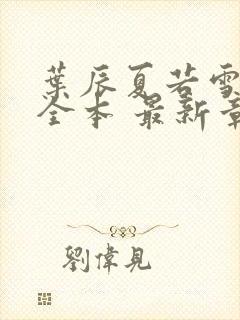 葉辰夏若雪
全本 最新章
劉偉見